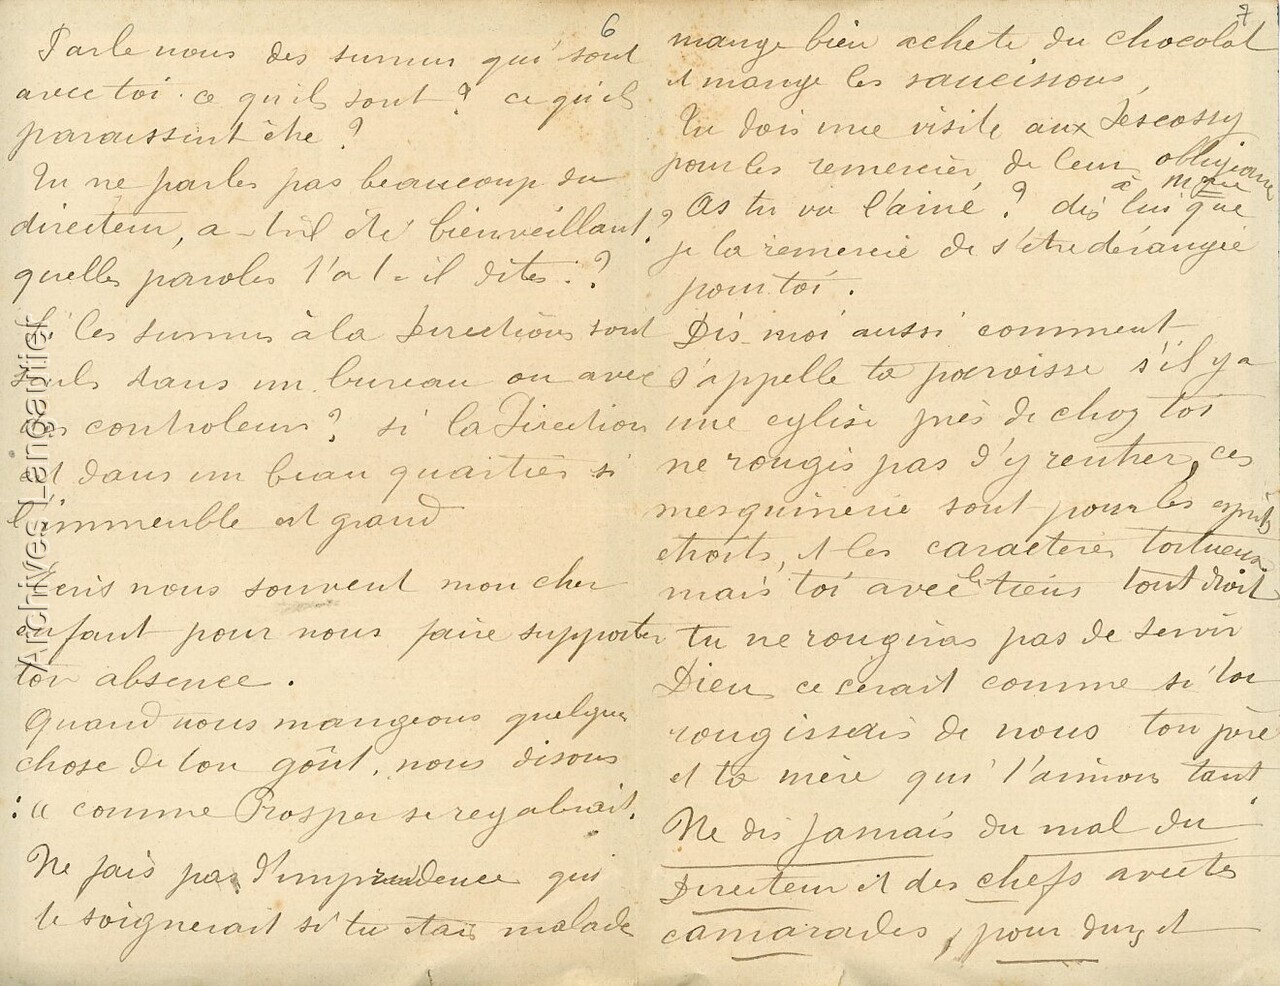 6
Parle nous des surnus qui sont
avec toi. ce qu'ils sont ? ce qu'ils
paraissent être ?
Tu ne parles pas beaucoup du
directeur, a-t-il été bienveillant ?
quelles paroles t'a t-il dites. ?
Si les surnus à la Direction sont
seuls dans un bureau ou avec
les controleurs ? si la Direction
est dans un beau quartier si
l'immeuble est grand
Ecris nous souvent mon cher
enfant pour nous faire supporter
ton absence.
Quand nous mangeons quelque
chose de ton goût, nous disons
: " comme Prosper se regalerait.
Ne fais pas d'imprudence qui
te soignerait si tu etais malade
7
mange bien achete du chocolat
et mange les saucissons,
Tu dois une visite aux Descossy
pour les remercier de leur obligeance
? As tu vu l'ainé ? dis à lui que
Mme
je la remercie de s'être dérangée
pour toi.
Dis-moi aussi comment
s'appelle ta paroisse s'il y a
une eglise près de chez toi
ne rougis pas d'y rentrer, ces
mesquinerie sont pour les esprits
etroits, et les caracteres tortueux
mais toi avec le tiens tout droit
tu ne rougiras pas de servir
Dieu ce cerait comme si toi
rougissais de nous ton père
et ta mère qui t'aimons tant.
Ne dis jamais du mal du
Directeur et des chefs avec tes
camarades, pour et
Archives Langautier